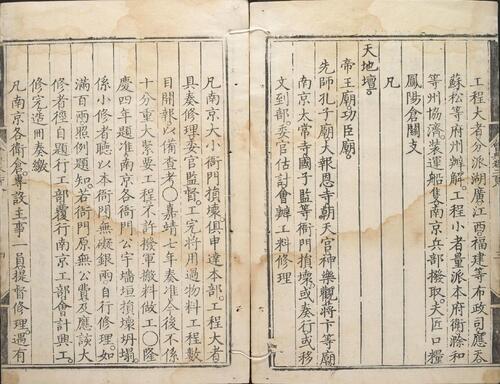 工程大者分派湖廣江西福建等布政司應天
蘇松等府州辦解工程小者量派本府衛滁和
等州協濟裝運船隻南京兵部撥取夫匠口糧
鳳陽倉關支
凡
天地壇
帝王廟功臣廟
先師孔子廟大報恩寺朝天宮神樂觀將卞等廟
南京太常寺國子監等衙門損壞或奏行或移
文到部委官估計會辦工料修理
凡南京大小衙門損壞俱申達本部工程大者
具奏修理委官監督工完將用過物料工程數
目開報以備查考〇嘉靖七年奏准今後不係
十分重大緊要工程不許撥軍搬料做工〇隆
慶四年題准南京各衙門公宇牆垣損壞坍塌
係小修者聽以本衙門無礙銀兩自行修理如
滿百兩照例題知若衙門原無公費及應該大
修者徑自題行工部覆行南京工部會計興工
修完造冊奏繳
凡南京各衛倉專設主事一員提督修理遇有